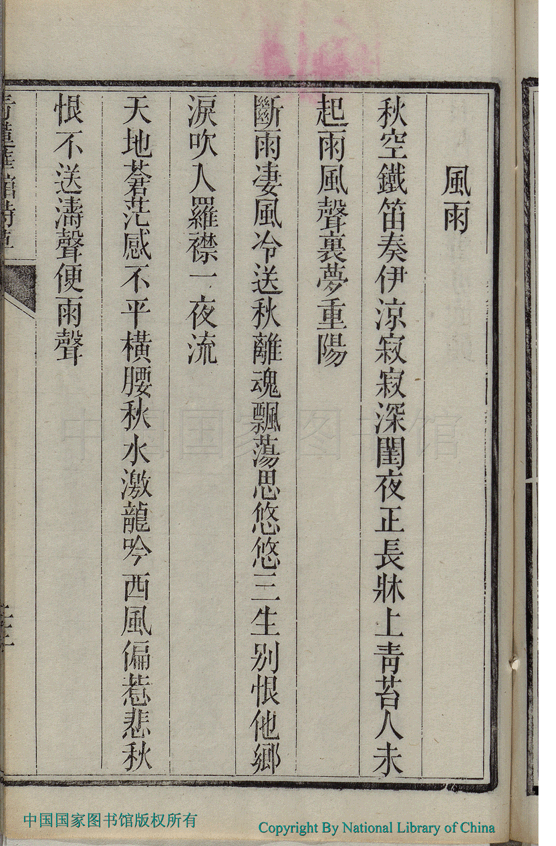 風雨
秋空鐵笛奏伊涼寂寂深閨夜正長牀上青苔人未
起雨風聲裏夢重陽
斷雨凄風冷送秋離魂飄蕩思悠悠三生别恨他鄉
淚吹人羅襟一夜流
天地蒼茫感不平橫腰秋水激龍吟西風偏惹悲秋
恨不送濤聲便雨聲
中国国家图书馆
中国国家图书馆版权所有
Copyright By National Library of China